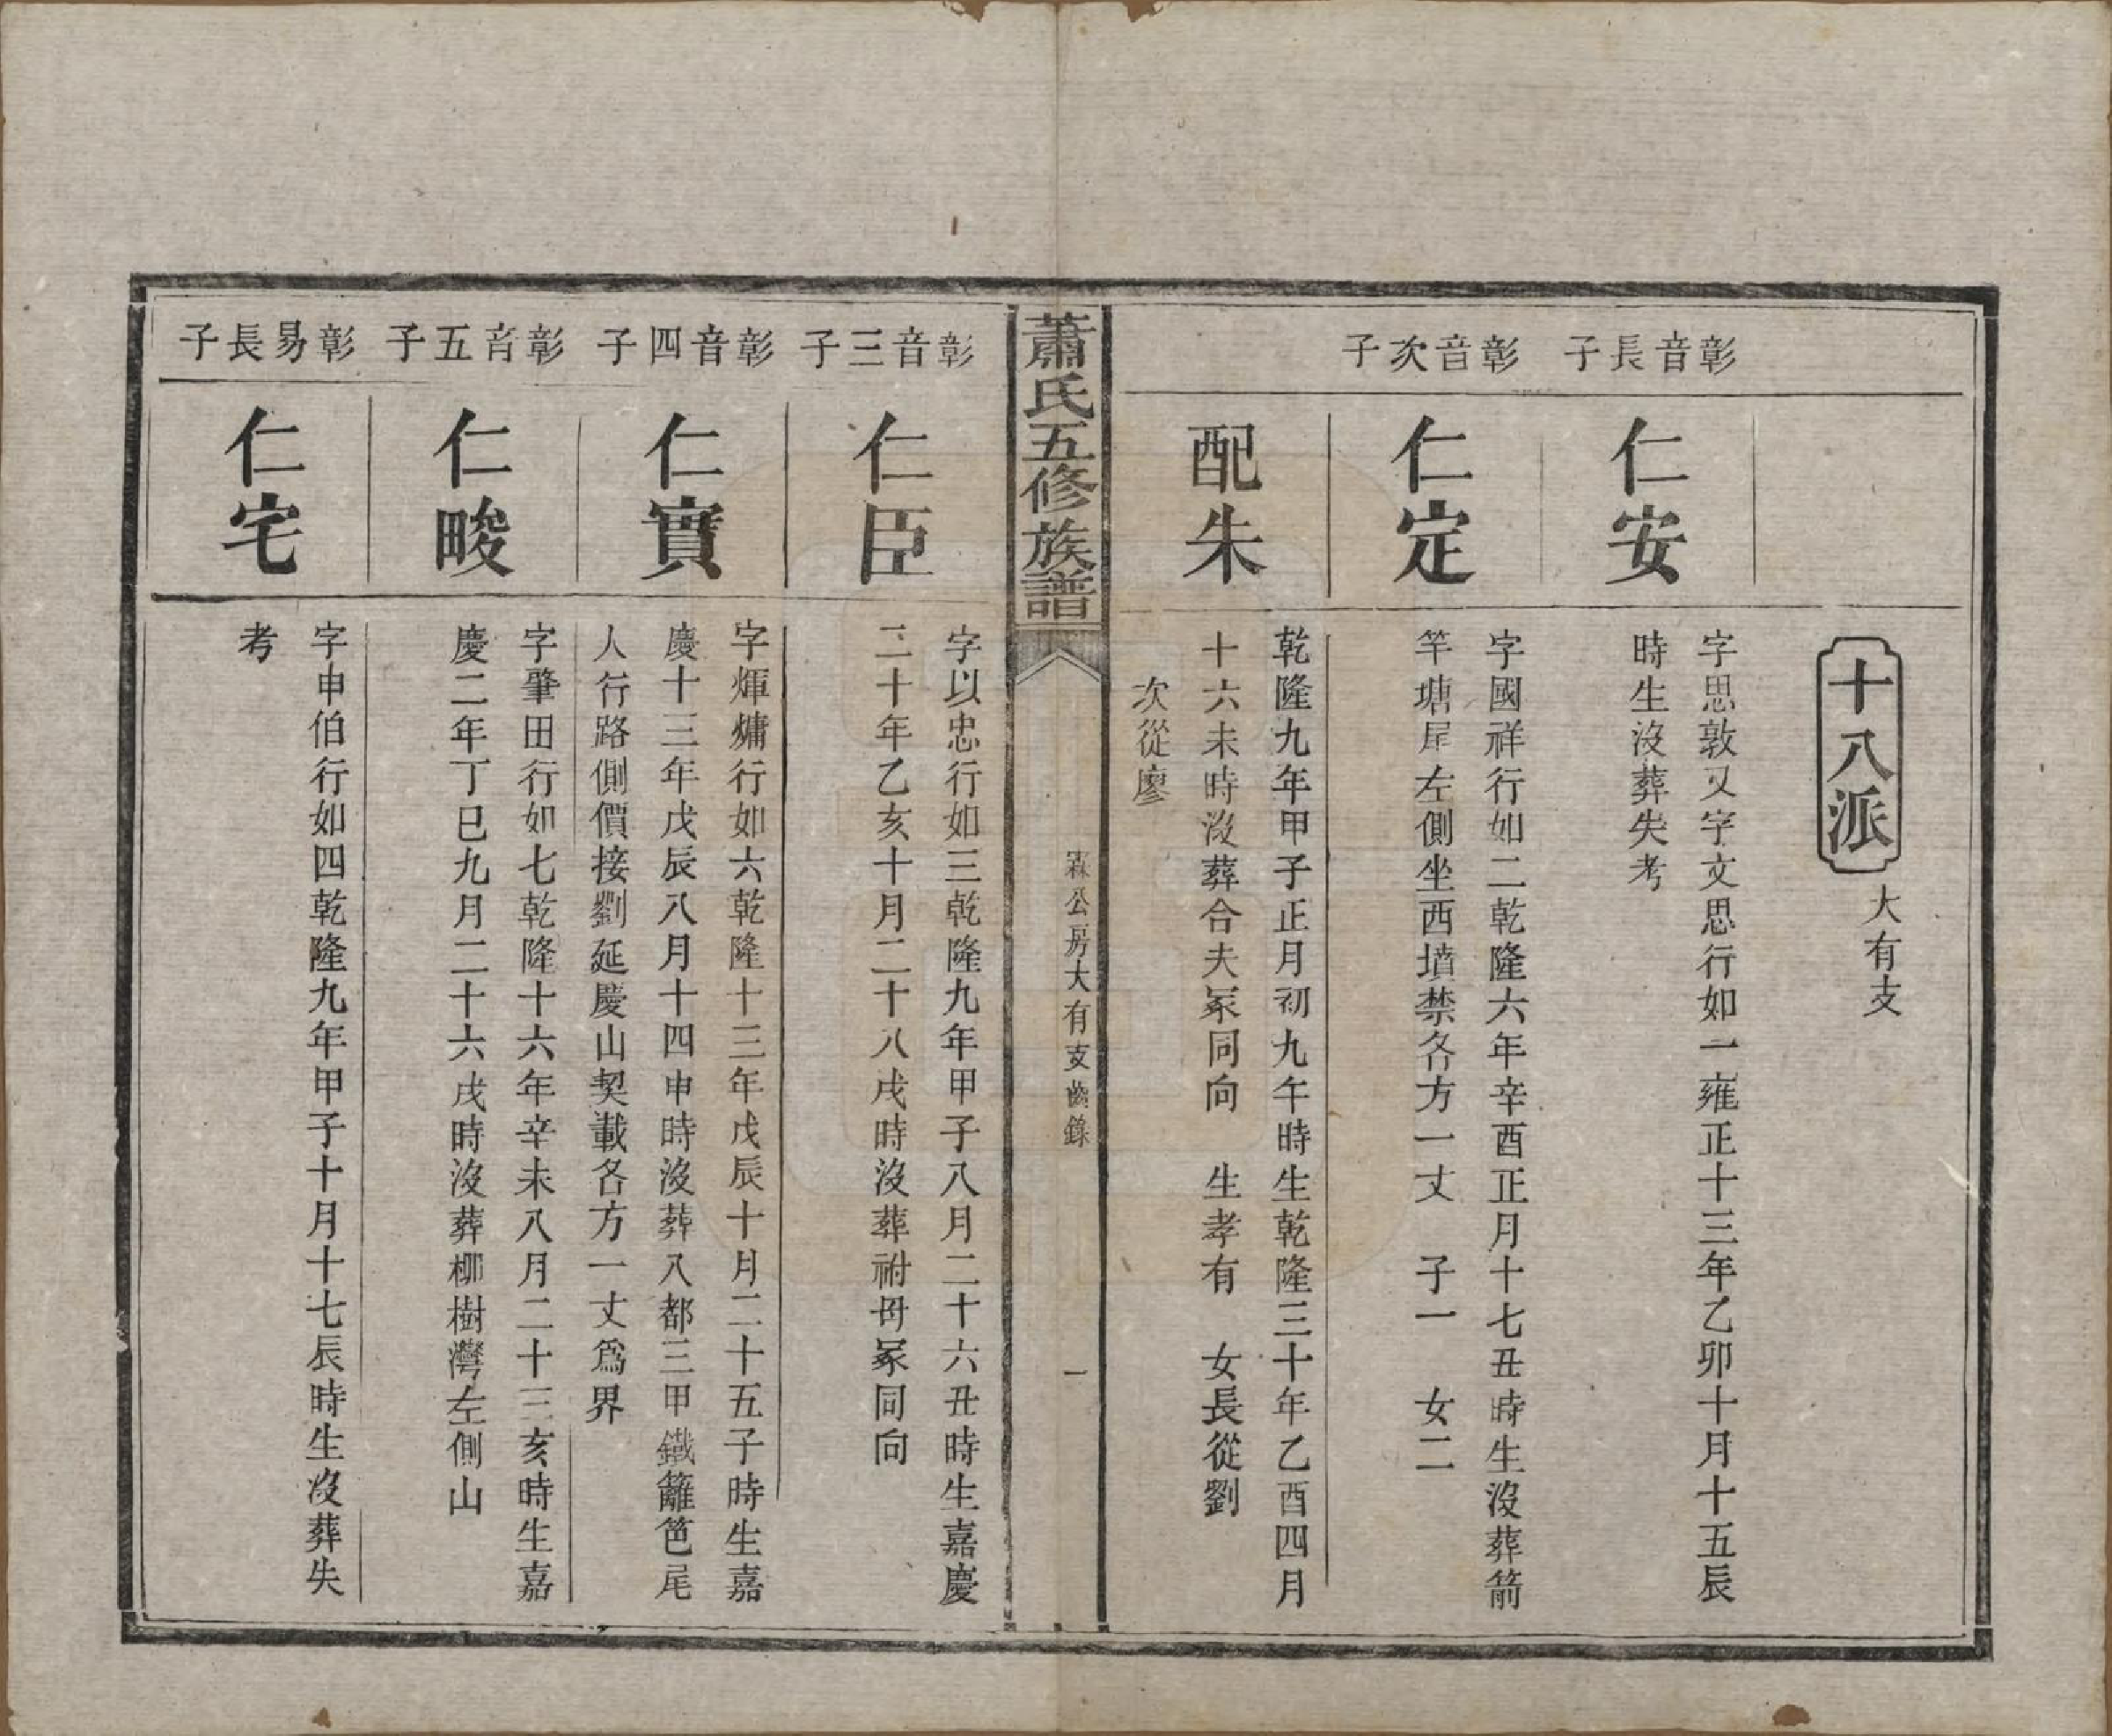 十八派
大有支
彰音長子
仁安
字思敦又字文思行如一雍正十三年乙卯十月十五辰
時生沒葬失考
彰音次子
仁定
字國祥行如二乾隆六年辛酉正月十七丑時生沒葬箭
竿塘尾左側坐西墳禁各方一丈 子一 女二
配朱
乾隆九年甲子正月初九午時生乾隆三十年乙酉四月
十六未時沒葬合夫冢同向 生孝有 女長從劉
次從廖
蕭氏五修族譜
霖公房大有支齒錄
一
彰音三子
仁臣
字以忠行如三乾隆九年甲子八月二十六丑時生嘉慶
二十年乙亥十月二十八戌時沒葬祔母冢同向
彰音四子
仁實
字煇爀行如六乾隆十三年戊辰十月二十五子時生嘉
慶十三年戊辰八月十四申時沒葬八都三甲鐵籬笆尾
人行路側價接劉延慶山契載各方一丈爲界
彰音五子
仁畯
字肇田行如七乾隆十六年辛未八月二十三亥時生嘉
慶二年丁巳九月二十六戌時沒葬栁樹灣左側山
彰易長子
仁宅
字申伯行如四乾隆九年甲子十月十七辰時生沒葬失
考